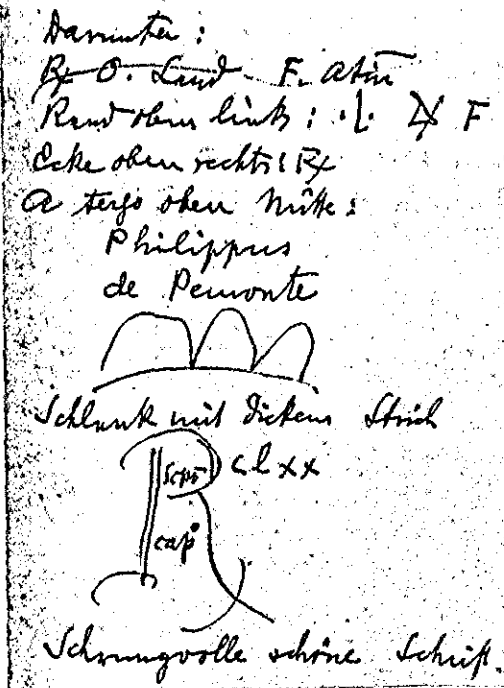 Darunter:
Rx O. Laud. F. Atin
Rand oben links: ·/· F
Ecke oben rechts: Rx
A tergo oben Mitte:
Philippus
de Pemonte
Schlank mit dickem Strich
Scpt clxx
cap
Schwungvolle schöne Schrift.